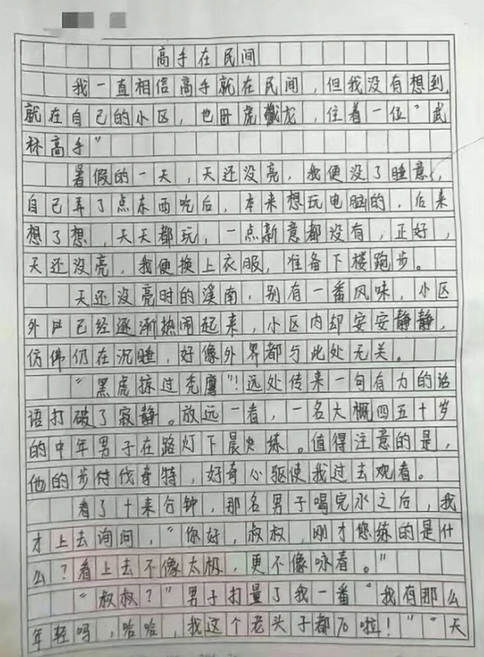 高手在民间
我一直相信高手就在民间，但我没有想到，
就在自己的小区，也卧虎藏龙，住着一位"武
林高手"
暑假的一天，天还没亮，我便没了睡意，
自己弄了点东西吃后，本来想玩电脑的，后来
想了想，天天都玩，一点新意都没有，正好，
天还没亮，我便换上衣服，准备下楼跑步。
天还没亮时的溪南，别有一番风味，小区
外户已经逐渐热闹起来，小区内却安安静静，
仿佛仍在沉睡，好像外界都与此处无关。
"黑虎掠过秃鹰"！远处传来一句有为的话
语打破了寂静。放远一看，一名大概四五十岁
的中年男子在路灯下晨练。值得注意的是，
他的步伐奇特，好奇心驱使我过去观看。
看了十来分钟，那名男子喝完水之后，我
才上去询问，"你好，叔叔，刚才您练的是什
么？看上去不像太极，更不像咏春。"
"叔叔？"男子打量了我一番"我有那么
年轻吗，哈哈，我这个老头子都70啦！""天